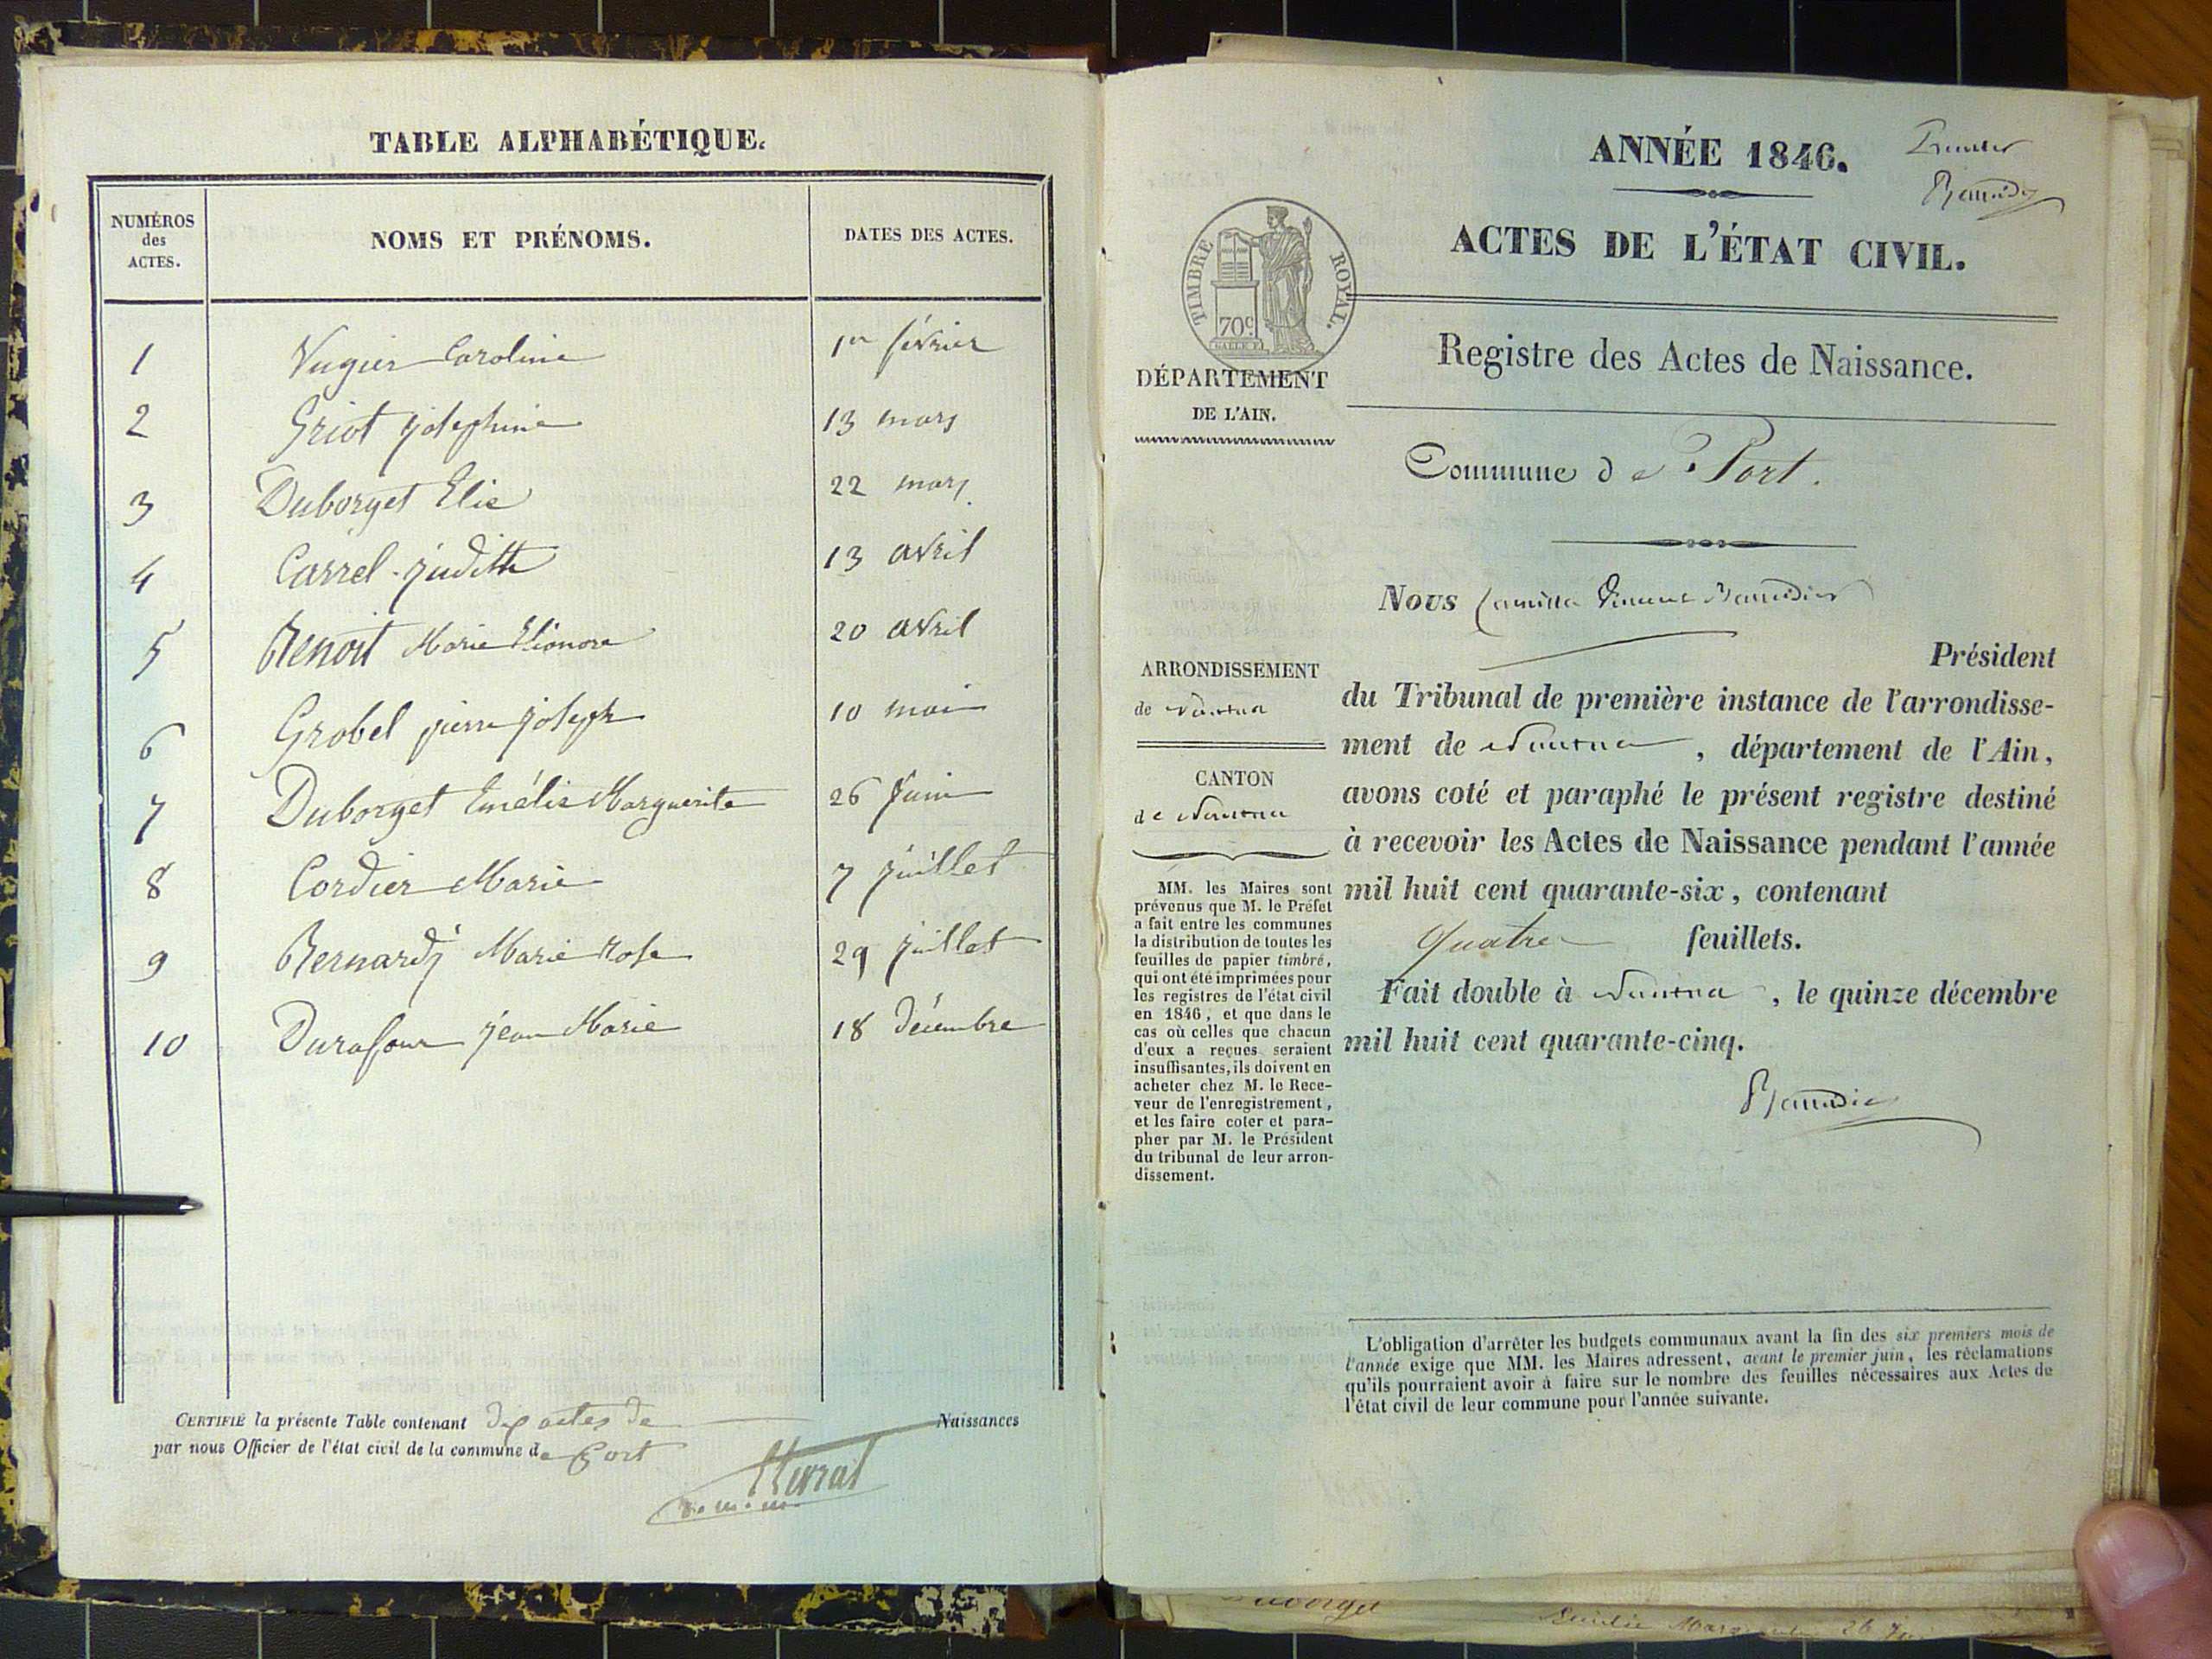 TABLE ALPHABÉTIQUE.
NUMÉROS
des
ACTES.
NOMS ET PRÉNOMS.
DATES DES ACTES.
1 Vugier Caroline 1er février
2 Griot josephine 13 mars
3 Duborget Elie 22 mars
4 Carrel judith 13 avril
5 Benoit Marie Eléonore 20 avril
6 Grobel pierre joseph 10 mai
7 Duborget Emélie Marguerite 26 juin
8 Cordier Marie 7 juillet
9 Bernardy Marie Rose 29 juillet
10 Durafour jean Marie 18 décembre
CERTIFIÉ la présente Table contenant dix actes de Naissances
par nous Officier de l'état civil de la commune de Port
ANNÉE 1846.
Premier
ACTES DE L'ÉTAT CIVIL.
TIMBRE ROYAL.
70c
Registre des Actes de Naissance.
DÉPARTEMENT
DE L'AIN.
Commune de Port.
Nous Camille Vincent Baudier
Président
du Tribunal de première instance de l'arrondisse-
ment de Nantua, département de l'Ain,
avons coté et paraphé le présent registre destiné
à recevoir les Actes de Naissance pendant l'année
mil huit cent quarante-six, contenant
quatre feuillets.
Fait double à Nantua, le quinze décembre
mil huit cent quarante-cinq.
ARRONDISSEMENT
de Nantua
CANTON
de Nantua
MM. les Maires sont
prévenus que M. le Préfet
a fait entre les communes
la distribution de toutes les
feuilles de papier timbré,
qui ont été imprimées pour
les registres de l'état civil
en 1846, et que dans le
cas où celles que chacun
d'eux a reçues seraient
insuffisantes, ils doivent en
acheter chez M. le Rece-
veur de l'enregistrement,
et les faire coter et para-
pher par M. le Président
du tribunal de leur arron-
dissement.
L'obligation d'arrêter les budgets communaux avant la fin des six premiers mois de
l'année exige que MM. les Maires adressent, avant le premier juin, les réclamations
qu'ils pourraient avoir à faire sur le nombre des feuilles nécessaires aux Actes de
l'état civil de leur commune pour l'année suivante.